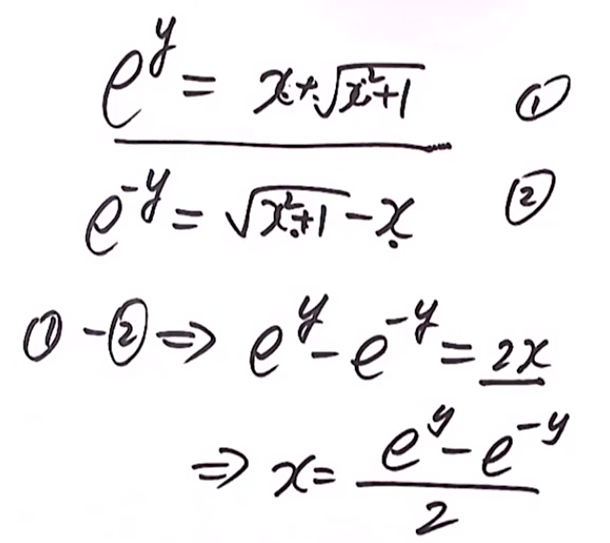 e^y = x+√(x²+1) ①
e^-y = √(x²+1) - x ②
① - ② ⇒ e^y - e^-y = 2x
⇒ x = (e^y - e^-y)/2